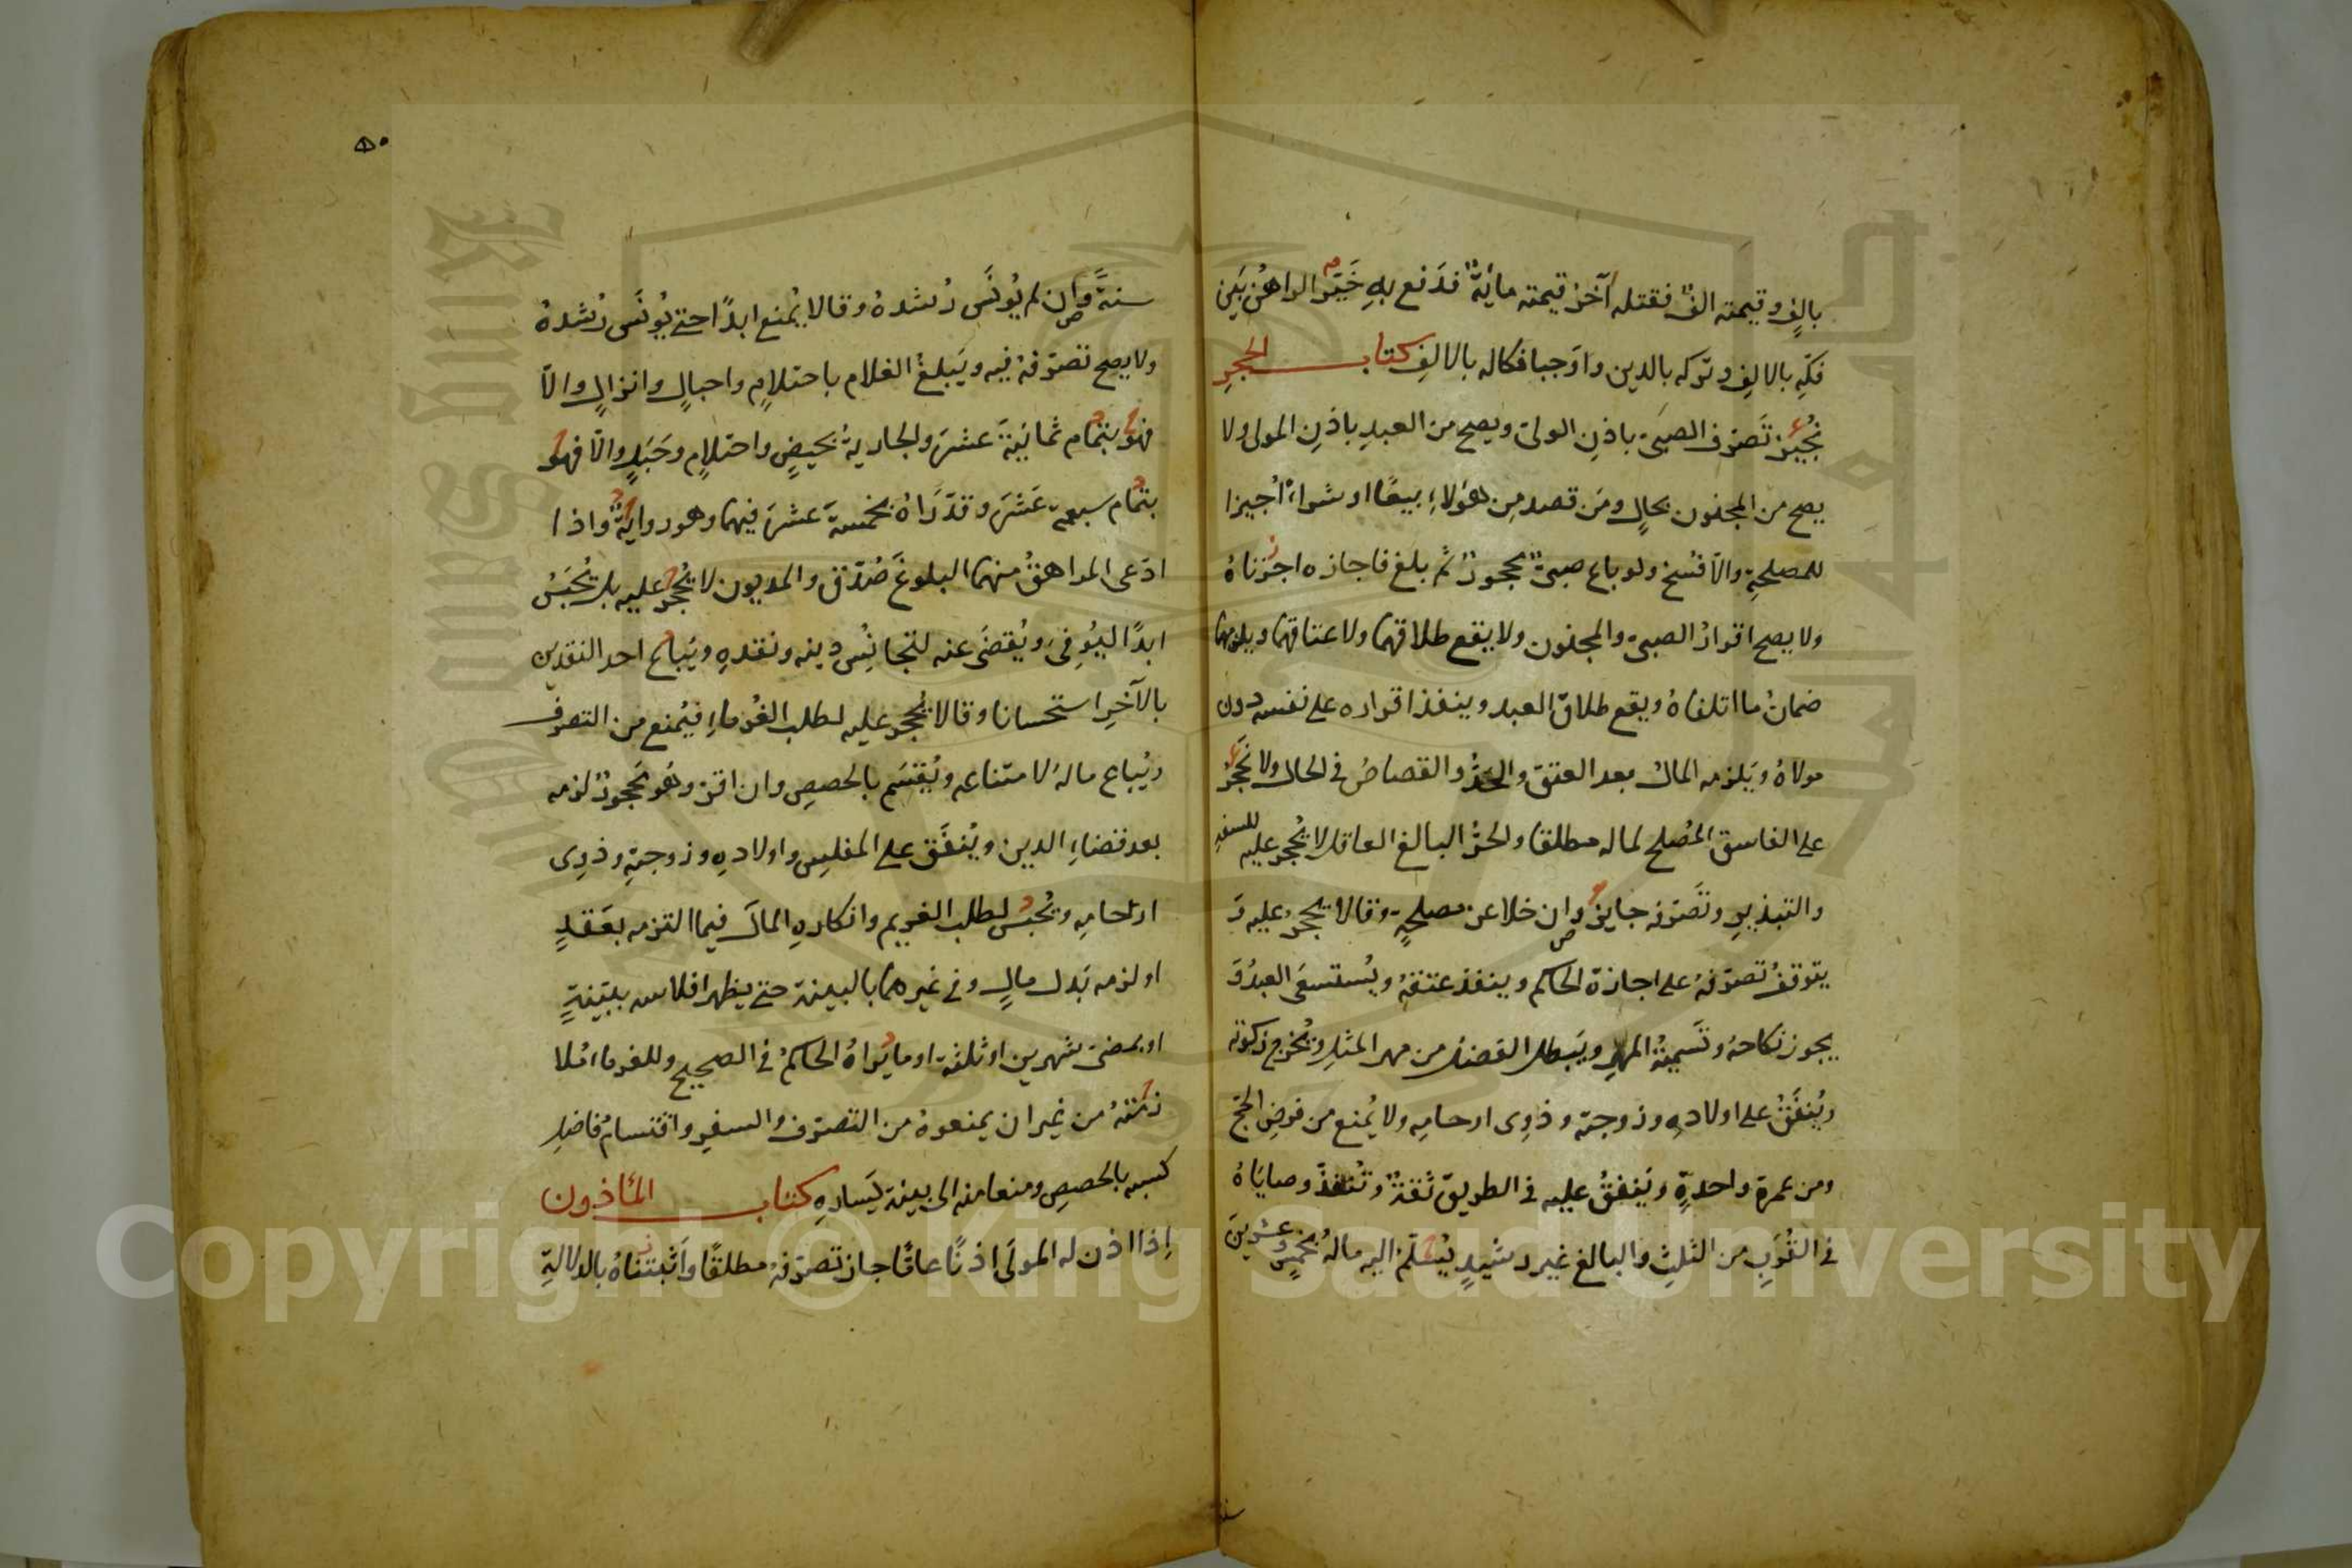 بالفٍ وقيمته الفٌ فقتله آخرُ قيمته مايةٌ فدَفع بهِ خَيَّرَ الراهنَ بَين
فكّهِ بالالفِ وتركه بالدين واَوجبا فكاله بالالفِ كتاب الحجرِ
نُجيزُ تَصرّف الصبىّ باذنِ الولىّ ويصح من العبدِ باذنِ المولى ولا
يصح من المجنون بحالٍ ومَن قصد مِن هؤلاءِ بيعًا او شراءً اُجيزا
للمصلحةِ والّا فُسخ ولو باع صبىٌّ محجورٌ ثم بلغ فاجازه اجزناهُ
ولا يصح اقرارُ الصبىّ والمجنون ولا يقع طلاقهما ولا عتاقهما ويلزمهما
ضمانُ ما اتلفاهُ ويقع طلاق العبد وينفذ اقراره على نفسه دون
مولاهُ ويَلزمه المال بعد العتق والحدُّ والقصاصُ فى الحال ولا نَحجُر
على الفاسق المُصلح لماله مطلقا والحرُّ البالغ العاقل لا يُحجر عليه للسفهِ
والتبذيرِ وتَصرّفه جايزٌ وان خلا عن مصلحةٍ وقالا يحجرُ عليه وَ
يتوقفُ تصرّفهُ على اجازة الحاكم وينفذ عتقهُ ويُستسعَى العبدُ وَ
يجوز نكاحهُ وتَسميةُ المهرِ ويَبطل الفضل من مهر المثلِ وتُخرج زكوته
ويُنفَقُ على اولادهِ وزوجته وذوِى ارحامِه ولا يُمنع من فرضِ الحجّ
ومن عمرةٍ واحدةٍ ويَنفقُ عليه فى الطريق ثقةٌ وتُنفذُ وصاياهُ
فى القُرَبِ من الثلثِ والبالغ غير رشيدٍ يُسَلّمُ اليه مالهُ بخمسٍ وعشرينَ
سنة
٥٠
سنةً وان لم يُونَس رُشدهُ وقالا يُمنع ابدًا حتى يُونَس رُشدهُ
ولا يصح تصرّفهُ فيه ويَبلغُ الغلام باحتلامٍ واحبالٍ وانزالٍ والّا
فهو بتمام ثمانيةَ عشرَ والجاريةُ بحيضٍ واحتلامٍ وحَبَلٍ والّا فهو
بتمام سبعةَ عَشَرَ وقدّرَاهُ بخمسةَ عشرَ فيهما وهو روايةٌ واذا
ادّعى المراهقُ منهما البلوغَ صُدّق والمديون لا يُحجر عليه بل يُحبَسُ
ابدًا ليُوفِىَ ويُقضَى عنه لتجانُسِ دينه ونقدهِ ويُباع احد النقدين
بالآخرِ استحسانا وقالا يُحجر عليه لطلب الغُرماءِ فيُمنع من التصرف
ويُباع مالهُ لامتناعه ويُقسَم بالحصصِ وان اقرّ وهو محجورٌ لزمه
بعد قضاءِ الدين ويُنفَق على المفلسِ واولادهِ وزوجتهِ وذوِى
ارحامهِ ويُحبس لطلب الغريم وانكارهِ المالَ فيما التزمه بعَقدٍ
او لزمه بَدل مالٍ وفى غيرهما بالبينة حتى يظهر افلاسه ببيّنةٍ
او بمضىّ شهرين او ثلثة او ما يراهُ الحاكمُ فى الصحيح وللغرماء مُلا
زمتهُ من غير ان يمنعوهُ من التصرّف والسفر واقتسامُ فاضلِ
كسبه بالحصصِ ومنعا منه الى بينة يَسارهِ كتاب المأذون
إذا اذن له المولَى اذنًا عامًّا جاز تصرّفهُ مطلقًا واَثبتناهُ بالدلالةِ
Copyright © King Saud University